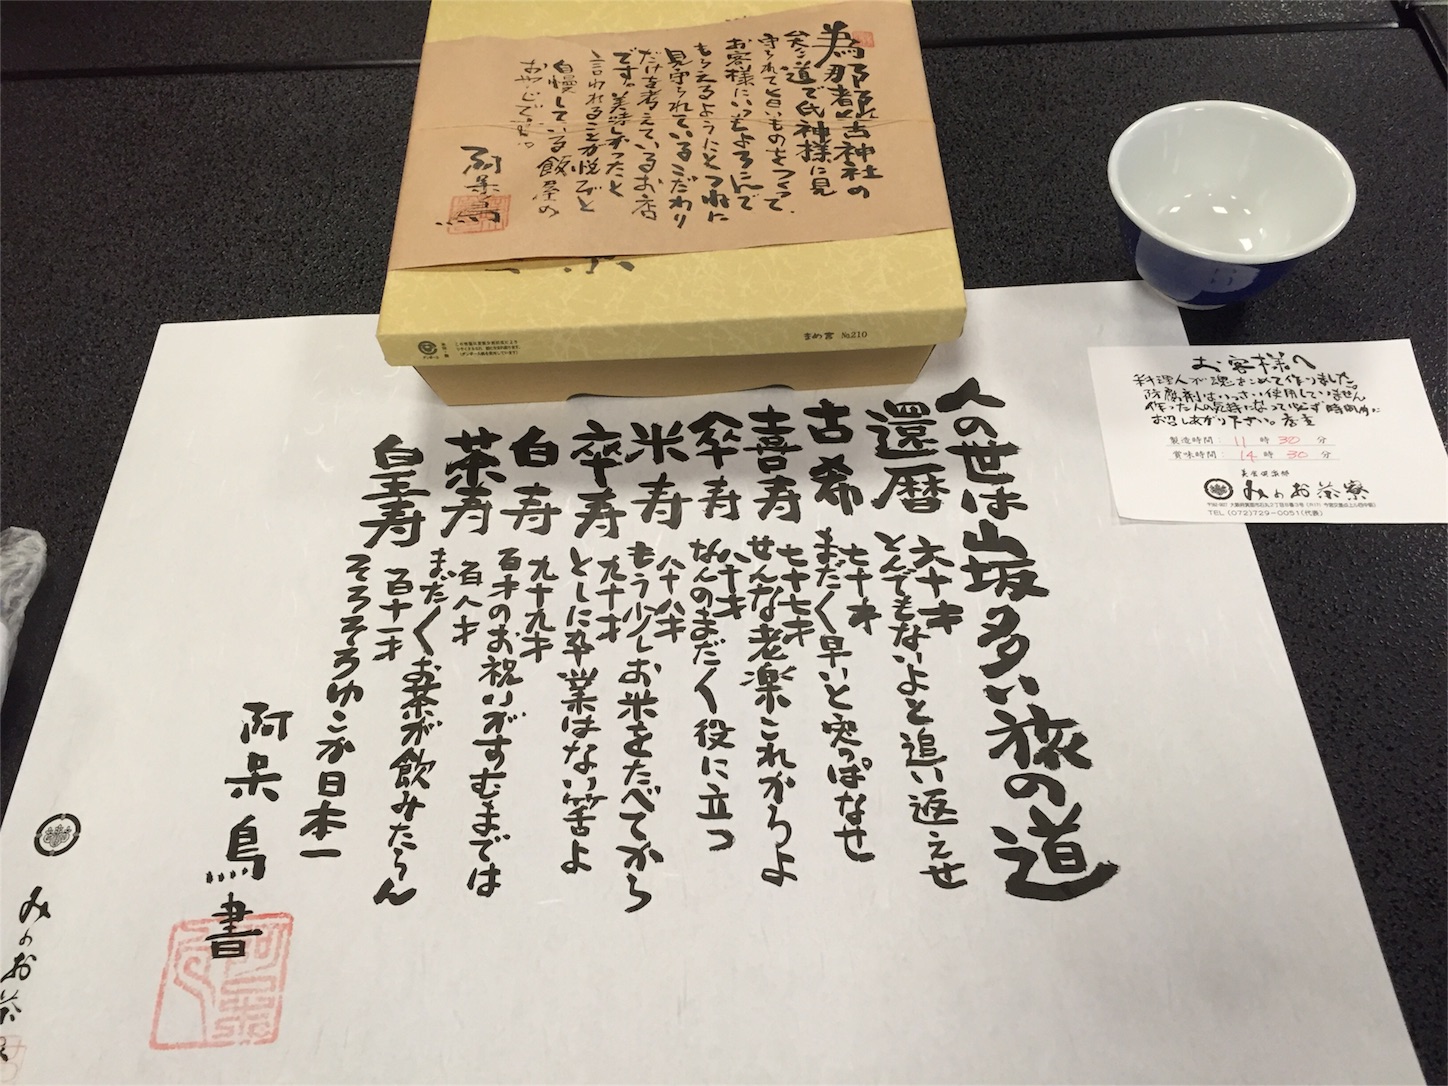 為那都比古神社の
参道で氏神様に見
守られて旨いものをつくって
お客様にいつもよろこんで
もらえるようにとつねに
見守られているこだわり
だけを考えているお店
です。美味しかったと
言われることが悦びと
自慢している飯屋の
おやじです。
阿呆鳥
まめ書 №210
人の世は山坂多い旅の道
還暦 六十才
とんでもないよと追い返えせ
古希 七十才
まだまだ早いと突っぱなせ
喜寿 七十七才
せんな老楽これからよ
傘寿 八十才
なんのまだまだ役に立つ
米寿 八十八才
もう少しお米をたべてから
卒寿 九十才
としに卒業はない筈よ
白寿 九十九才
百才のお祝いがすむまでは
茶寿 百八才
まだまだお茶が飲みたらん
皇寿 百十一才
そろそろゆこか日本一
阿呆鳥書
みのお茶寮
お客様へ
料理人が魂をこめて作りました。
防腐剤はいっさい使用していません
作った人の気持になって必ず時間内に
お召しあがり下さい。店主
製造時間: 11 時 30 分
賞味時間: 14 時 30 分
みのお茶寮
TEL (072)729-0051(代表)